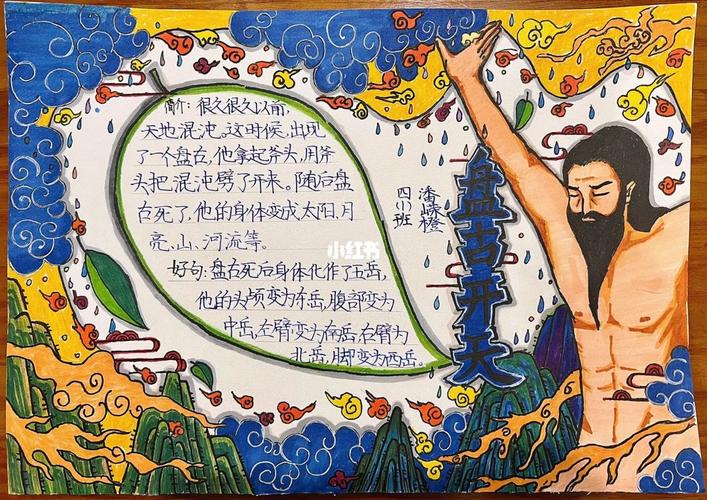 简介:很久很久以前,
天地混沌。这时候,出现
了一个盘古,他拿起斧头,用斧
头把混沌劈了开来。随后盘
古死了,他的身体变成太阳、月
亮、山、河流等。
好句:盘古死后身体化作了五岳,
他的头颅变为东岳,腹部变为
中岳,左臂变为南岳,右臂为
北岳,脚变为西岳。
盘古开天
潘嵘橙
四(1)班
小红书